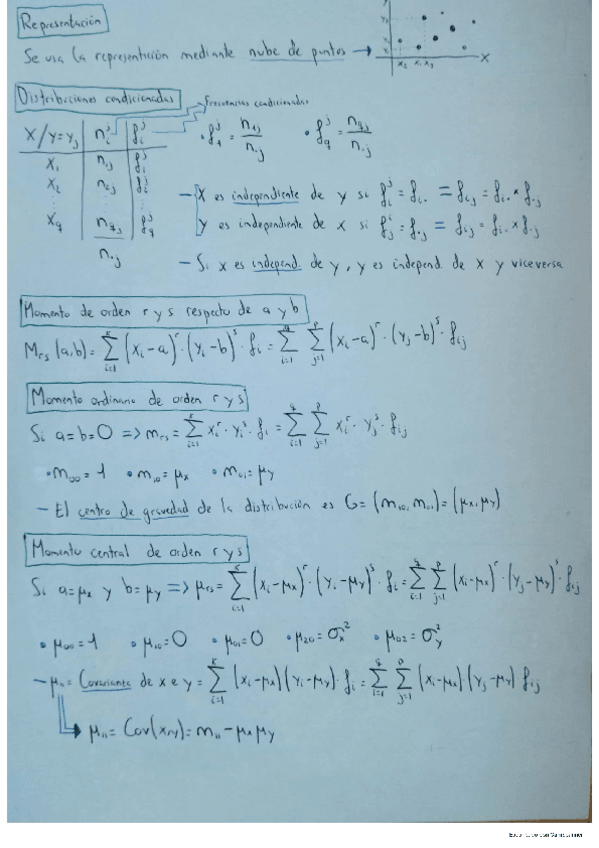 Representación
Se usa la representación mediante nube de puntos →
X
X₂ X₁ X₃
Distribuciones condicionadas
frecuencias condicionadas
X/Y=Yⱼ nᵢʲ fᵢʲ
X₁ n₁ⱼ f₁ʲ
X₂ n₂ⱼ f₂ʲ
X_q n_qⱼ f_qʲ
n.ⱼ
• f₁ʲ = n₁ⱼ / n.ⱼ • f_qʲ = n_qⱼ / n.ⱼ
- X es independiente de y si fᵢʲ = fᵢ. = fᵢⱼ = fᵢ. * f.ⱼ
Y es independiente de x si fⱼⁱ = f.ⱼ = fᵢⱼ = fᵢ. * f.ⱼ
- Si x es independ. de y, y es independ. de x y viceversa
Momento de orden r y s respecto de a y b
M_rs (a,b) = Σᵢ₌₁ᴷ (Xᵢ-a)ʳ · (Yᵢ-b)ˢ · fᵢ = Σᵢ₌₁^q Σⱼ₌₁ᵖ (Xᵢ-a)ʳ · (Yⱼ-b)ˢ · fᵢⱼ
Momento ordinario de orden r y s
Si a=b=0 => m_rs = Σᵢ₌₁ᴷ Xᵢʳ · Yᵢˢ · fᵢ = Σᵢ₌₁^q Σⱼ₌₁ᵖ Xᵢʳ · Yⱼˢ · fᵢⱼ
• m₀₀ = 1 • m₁₀ = μₓ • m₀₁ = μ_y
- El centro de gravedad de la distribución es G = (m₁₀, m₀₁) = (μₓ, μ_y)
Momento central de orden r y s
Si a=μₓ y b=μ_y => μ_rs = Σᵢ₌₁ᴷ (Xᵢ-μₓ)ʳ · (Yᵢ-μ_y)ˢ · fᵢ = Σᵢ₌₁^q Σⱼ₌₁ᵖ (Xᵢ-μₓ)ʳ · (Yⱼ-μ_y)ˢ · fᵢⱼ
• μ₀₀ = 1 • μ₁₀ = 0 • μ₀₁ = 0 • μ₂₀ = σₓ² • μ₀₂ = σ_y²
- μ₁₁ = Covarianza de x e y = Σᵢ₌₁ᴷ (Xᵢ-μₓ)(Yᵢ-μ_y) · fᵢ = Σᵢ₌₁^q Σⱼ₌₁ᵖ (Xᵢ-μₓ) · (Yⱼ-μ_y) fᵢⱼ
μ₁₁ = Cov(x,y) = m₁₁ - μₓ μ_y